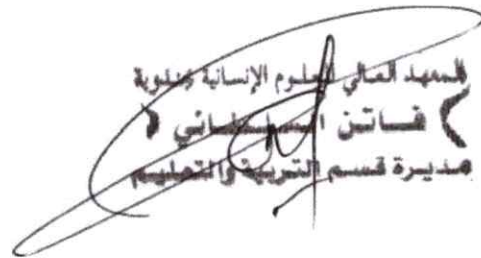 المعهد العالي للعلوم الإنسانية بجندوبة
فاتن السلطاني
مديرة قسم التربية والتعليم